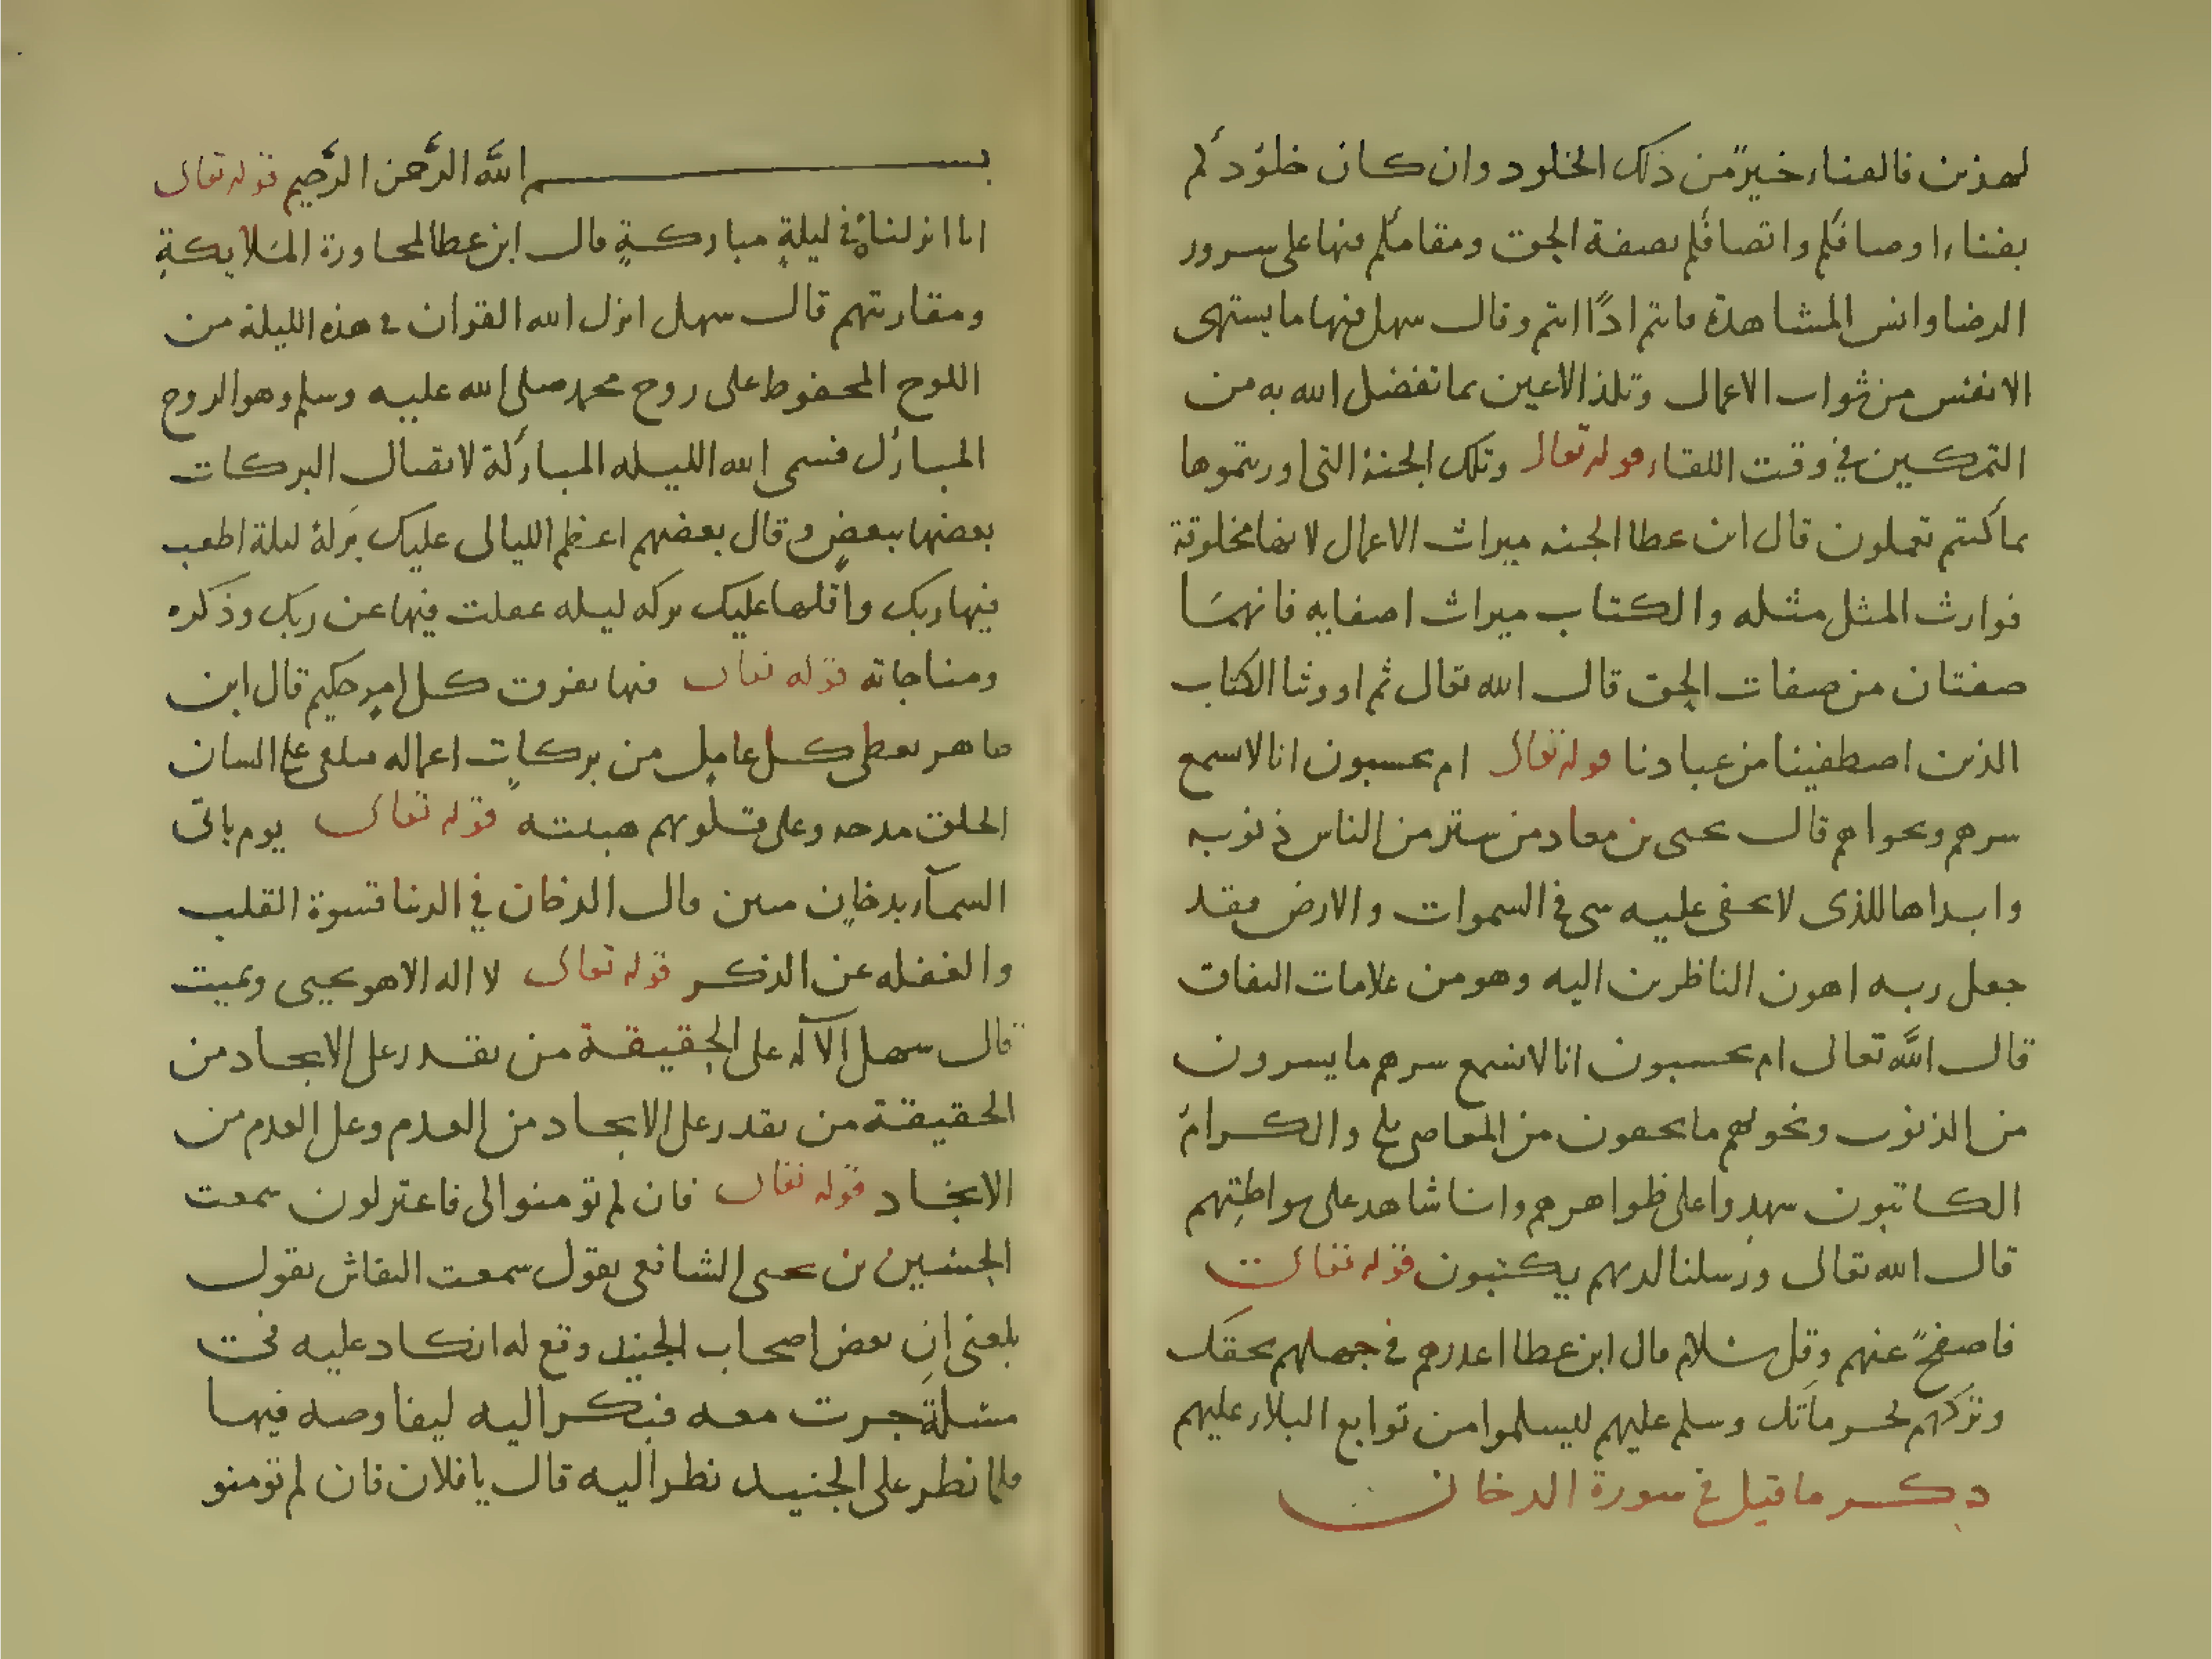 لهذين فالفناء خير من ذلك الخلود وان كان خلودكم
بفناء اوصافكم واتصافكم بصفة الحق ومقامكم فيها على سرور
الرضا وانس المشاهدة فانتم اذًا انتم وقال سهل فيها ما يشتهى
الانفس من ثواب الاعمال وتلذ الاعين بما تفضل الله به من
التمكين في وقت اللقاء قوله تعالى وتلك الجنة التى اورثتموها
بما كنتم تعملون قال ابن عطا الجنه ميراث الاعمال لانها مخلوقة
فوارث المثل مثله والكتاب ميراث اصفايه فانهما
صفتان من صفات الحق قال الله تعالى ثم اورثنا الكتاب
الذين اصطفينا من عبادنا قوله تعالى ام يحسبون انا لا نسمع
سرهم ونجواهم قال يحيى بن معاد من ستر من الناس ذنوبه
وابداها للذى لا يخفى عليه شى في السموات والارض فقد
جعل ربه اهون الناظرين اليه وهو من علامات النفاق
قال الله تعالى ام يحسبون انا لا نسمع سرهم ما يسرون
من الذنوب ونجواهم ما يخفون من المعاصى بلى والكرام
الكاتبون شهدوا على ظواهرهم وانا شاهد على بواطنهم
قال الله تعالى ورسلنا لديهم يكتبون قوله تعالى
فاصفح عنهم وقل سلام قال ابن عطا اعذرهم في جهلهم بحقك
وتركهم لحرماتك وسلم عليهم ليسلموا من توابع البلاء عليهم
ذكر ما قيل في سورة الدخان
بسم الله الرحمن الرحيم قوله تعالى
انا انزلناه في ليلة مباركة قال ابن عطا لمجاورة الملايكة
ومقاربتهم قال سهل انزل الله القران في هذه الليلة من
اللوح المحفوظ على روح محمد صلى الله عليه وسلم وهو الروح
المبارك فسمى الله الليله المباركة لاتصال البركات
بعضها ببعض وقال بعضهم اعظم الليالى عليك بركة ليلة
فيها ربك واقلها عليك بركه ليله غفلت فيها عن ربك وذكره
ومناجاته قوله تعالى فيها يفرق كل امر حكيم قال ابن
طاهر يعطى كل عامل من بركات اعماله فيلقى على السان
الخلق مدحه وعلى قلوبهم هيبته قوله تعالى يوم ياتى
السماء بدخان مبين قال الدخان في الدنيا قسوة القلب
والغفله عن الذكر قوله تعالى لا اله الا هو يحيى ويميت
قال سهل الاله على الحقيقة من يقدر على الايجاد من
الحقيقة من يقدر على الايجاد من العدم وعلى العدم من
الايجاد قوله تعالى فان لم تومنوا لى فاعتزلون سمعت
الحسين بن يحيى الشافعى يقول سمعت النقاش يقول
بلغنى ان بعض اصحاب الجنيد وقع له انكار عليه في
مسلة جرت معه فبكر اليه ليفاوضه فيها
فلما نظر على الجنيد نظر اليه قال يا فلان فان لم تومنو